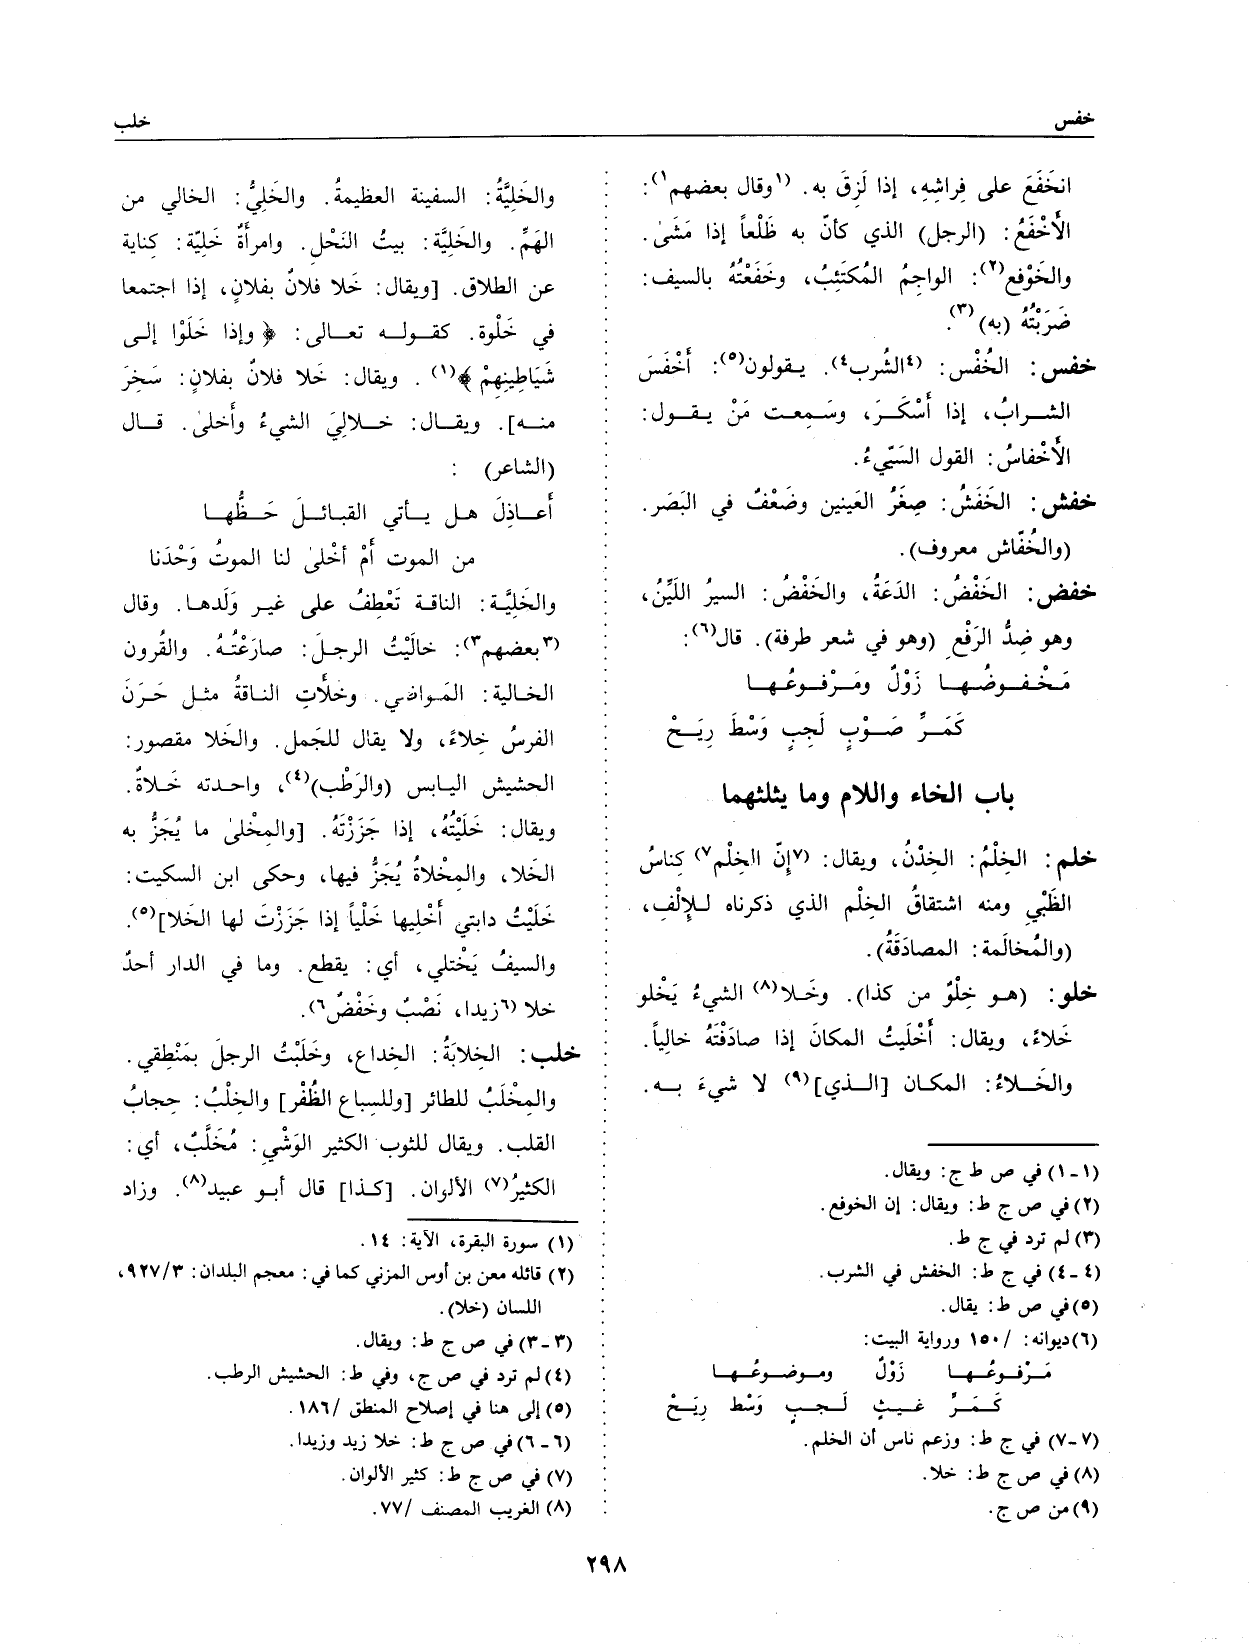 خفس
خلب
انخَفَعَ على فِراشِهِ، إذا لَزِقَ به. (١وقال بعضهم١):
الأَخْفَعُ: (الرجل) الذي كأنّ به ظَلْعاً إذا مَشَىٰ.
والخَوْفع(٢): الواجِمُ المُكتَئِبُ، وخَفَعْتُهُ بالسيف:
ضَرَبْتُهُ (به)(٣).
خفس: الخُفْس: (٤الشُرب٤). يـقولون(٥): أَخْفَسَ
الشرابُ، إذا أَسْكَرَ، وسَمِعت مَنْ يقول:
الأَخْفاسُ: القول السَيّيءُ.
خفش: الخَفَشُ: صِغَرُ العَينين وضَعْفٌ في البَصَر.
(والخُفّاش معروف).
خفض: الخَفْضُ: الدَعَةُ، والخَفْضُ: السيرُ اللَيِّنُ،
وهو ضِدُّ الرَفْعِ (وهو في شعر طرفة). قال(٦):
مَخْفوضُها زَوْلٌ ومَرْفوعُها
كَمَرِّ صَوْبٍ لَجِبٍ وَسْطَ رِيَحْ
باب الخاء واللام وما يثلثهما
خلم: الخِلْمُ: الخِدْنُ، ويقال: (٧إنّ الخِلْم٧) كِناسُ
الظَبْيِ ومنه اشتقاقُ الخِلْم الذي ذكرناه للإِلْفِ،
(والمُخالَمة: المصادَقَةُ).
خلو: (هو خِلْوٌ من كذا). وخَلا(٨) الشيءُ يَخْلو
خَلاءً، ويقال: أَخْلَيتُ المكانَ إذا صادَفْتَهُ خالِياً.
والخَلاءُ: المكان [الذي](٩) لا شيءَ به.
(١-١) في ص ط ج: ويقال.
(٢) في ص ج ط: ويقال: إن الخوفع.
(٣) لم ترد في ج ط.
(٤-٤) في ج ط: الخفش في الشرب.
(٥) في ص ط: يقال.
(٦) ديوانه: /١٥٠ ورواية البيت:
مَرْفوعُها زَوْلٌ وموضوعُها
كَمَرِّ غيثٍ لَجبٍ وَسْط رِيَحْ
(٧-٧) في ج ط: وزعم ناس أن الخلم.
(٨) في ص ج ط: خلا.
(٩) من ص ج.
والخَلِيَّةُ: السفينة العظيمةُ. والخَلِيُّ: الخالي من
الهَمِّ. والخَلِيَّة: بيتُ النَحْلِ. وامرأَةٌ خَلِيّة: كِناية
عن الطلاق. [ويقال: خَلا فلانٌ بفلانٍ، إذا اجتمعا
في خَلْوة. كقوله تعالى: ﴿وإذا خَلَوْا إلى
شَيَاطِينِهِمْ﴾(١). ويقال: خَلا فلانٌ بفلانٍ: سَخِرَ
منه]. ويقال: خلالِيَ الشيءُ وأَخلىٰ. قال
(الشاعر) :
أعاذِلَ هل يأتي القبائلَ حَظُّها
من الموت أَمْ أخْلىٰ لنا الموتُ وَحْدَنا
والخَلِيَّة: الناقة تَعْطِفُ على غير وَلَدها. وقال
(٣بعضهم٣): خالَيْتُ الرجلَ: صارَعْتُهُ. والقُرون
الخالية: المَواضي. وخلأتِ الناقةُ مثل حَرَنَ
الفرسُ خِلاءً، ولا يقال للجَمل. والخَلا مقصور:
الحشيش اليابس (والرَطْب)(٤)، واحدته خَلاةٌ.
ويقال: خَلَيْتُهُ، إذا جَزَزْتَهُ. [والمِخْلىٰ ما يُجَزُّ به
الخَلا، والمِخْلاةُ يُجَزُّ فيها، وحكى ابن السكيت:
خَلَيْتُ دابتي أَخْلِيها خَلْياً إذا جَزَزْتَ لها الخَلا](٥).
والسيفُ يَخْتلي، أي: يقطع. وما في الدار أحدٌ
خلا (٦زيدا، نَصْبٌ وخَفْضٌ٦).
خلب: الخِلابَةُ: الخِداع، وخَلَبْتُ الرجلَ بمَنْطِقي.
والمِخْلَبُ للطائر [وللسباع الظُفْر] والخِلْبُ: حِجابُ
القلب. ويقال للثوب الكثير الوَشْي: مُخَلَّبٌ، أي:
الكثيرُ(٧) الألوان. [كذا] قال أبو عبيد(٨). وزاد
(١) سورة البقرة، الآية: ١٤.
(٢) قائله معن بن أوس المزني كما في: معجم البلدان: ٩٢٧/٣،
اللسان (خلا).
(٣-٣) في ص ج ط: ويقال.
(٤) لم ترد في ص ج، وفي ط: الحشيش الرطب.
(٥) إلى هنا في إصلاح المنطق /١٨٦.
(٦-٦) في ص ج ط: خلا زيد وزيدا.
(٧) في ص ج ط: كثير الألوان.
(٨) الغريب المصنف /٧٧.
٢٩٨